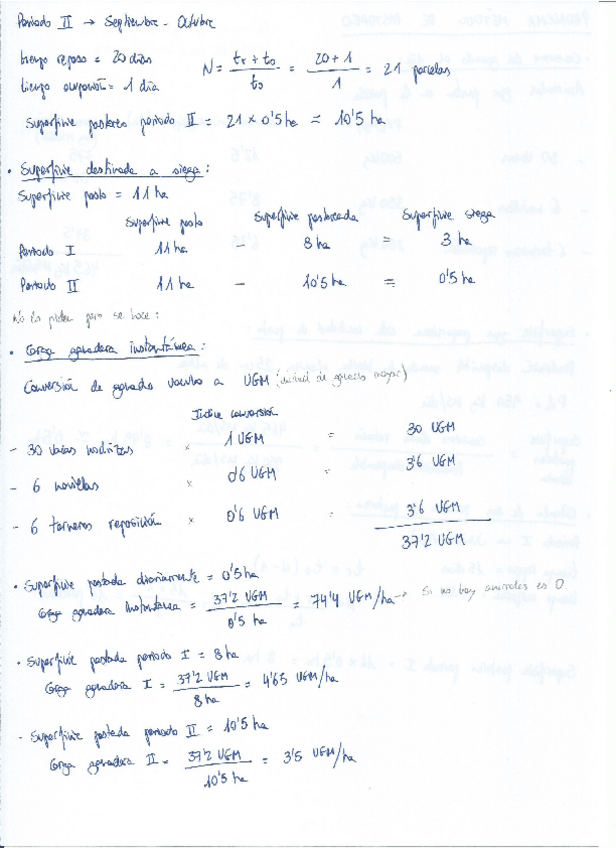 Periodo II → Septiembre - Octubre
tiempo reposo = 20 días
tiempo ocupación = 1 día
N = tr + to / to = 20 + 1 / 1 = 21 parcelas
Superficie pastoreo periodo II = 21 x 0'5 ha = 10'5 ha
• Superficie destinada a siega:
Superficie pasto = 11 ha
Superficie pasto Superficie pastoreada Superficie siega
Periodo I 11 ha - 8 ha = 3 ha
Periodo II 11 ha - 10'5 ha = 0'5 ha
No lo piden pero se hace:
• Carga ganadera instantánea:
Conversión de ganado vacuno a UGM (unidad de ganado mayor)
Indice conversión
- 30 vacas nodrizas x 1 UGM = 30 UGM
- 6 novillas x 0'6 UGM = 3'6 UGM
- 6 terneros reposición x 0'6 UGM = 3'6 UGM
37'2 UGM
• Superficie pastada diariamente = 0'5 ha
Carga ganadera instantanea = 37'2 UGM / 0'5 ha = 74'4 UGM/ha → Si no hay animales es 0
• Superficie pastada periodo I = 8 ha
Carga ganadera I = 37'2 UGM / 8 ha = 4'65 UGM/ha
- Superficie pastada periodo II = 10'5 ha
Carga ganadera II = 37'2 UGM / 10'5 ha = 3'5 UGM/ha